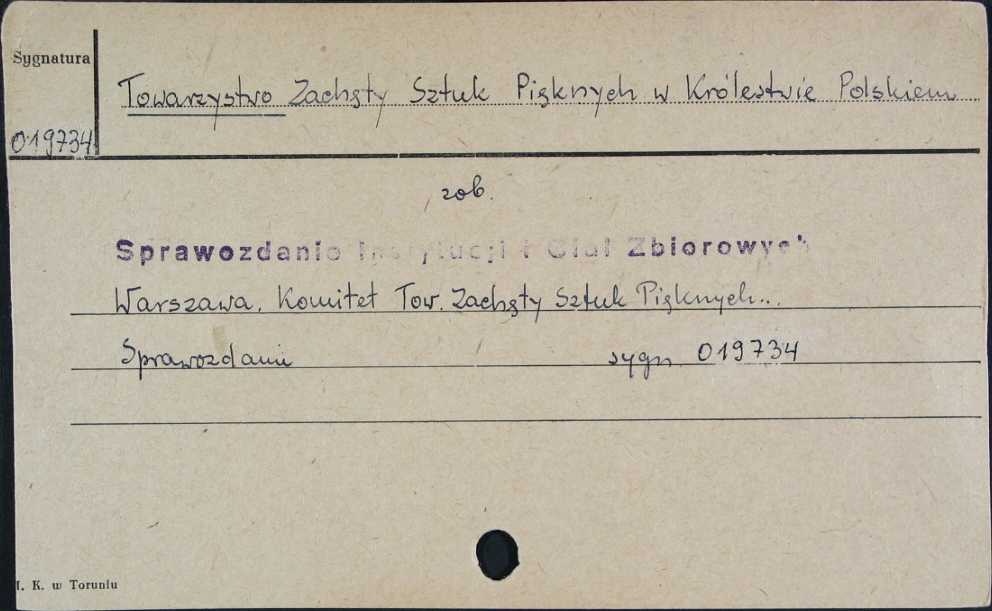 Sygnatura
Towarzystwo Zachęty Sztuk Pięknych w Królestwie Polskiem
019734
zob.
Sprawozdanie Instytucji i Ciał Zbiorowych
Warszawa. Komitet Tow. Zachęty Sztuk Pięknych...
Sprawozdanie sygn. 019734
I. K. w Toruniu